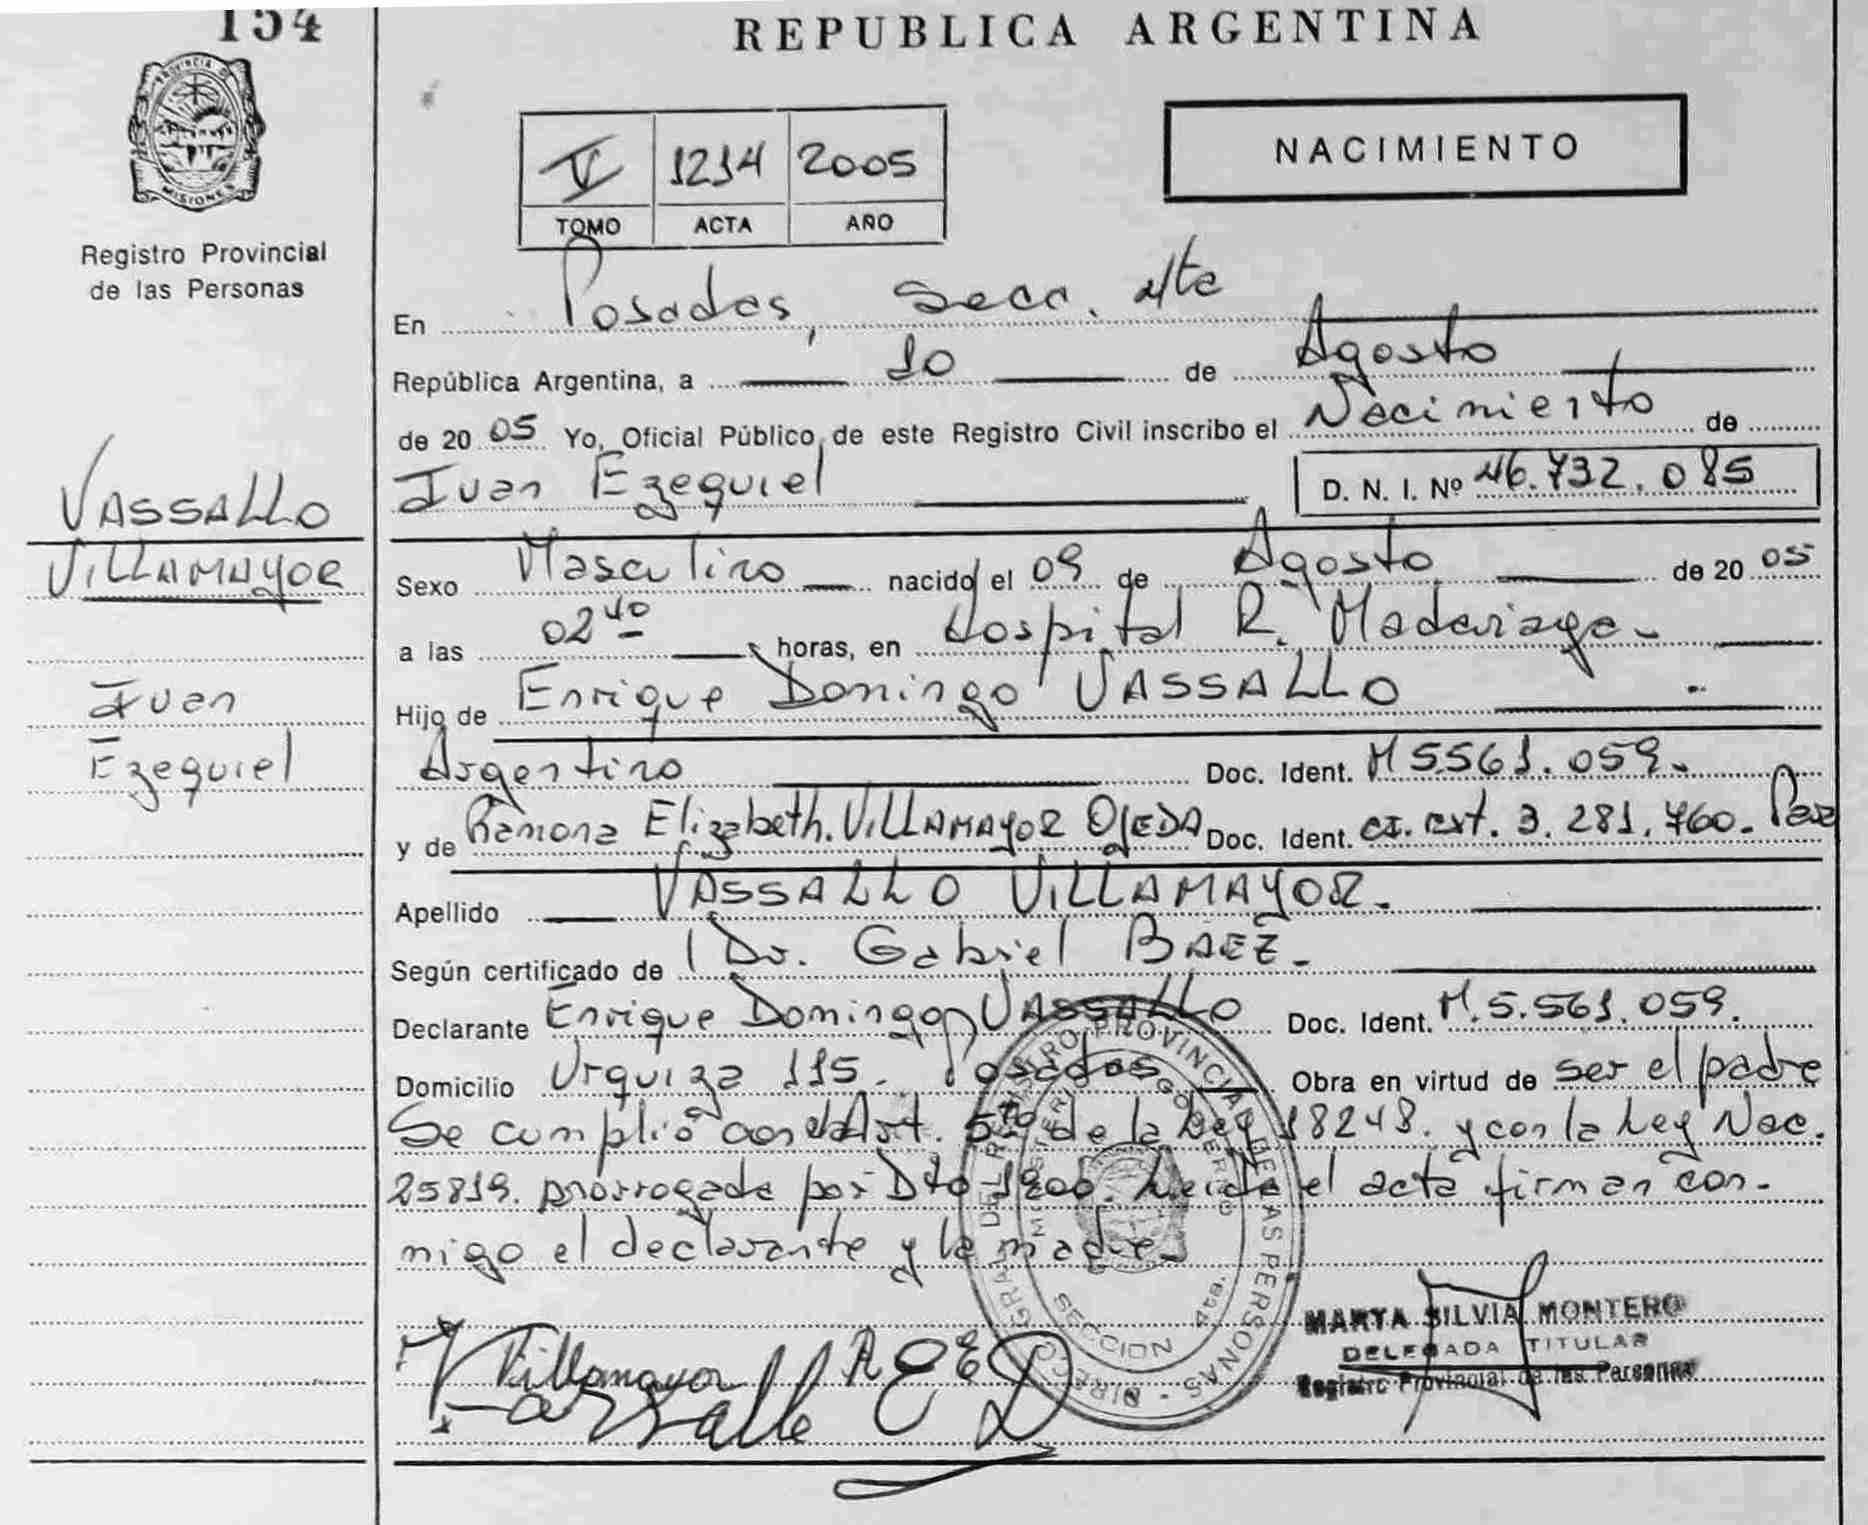 154
REPUBLICA ARGENTINA
PROVINCIA DE
MISIONES
Registro Provincial
de las Personas
NACIMIENTO
V 1214 2005
TOMO ACTA AÑO
En Posadas, Secc. 4ta
República Argentina, a 10 de Agosto
de 20 05 Yo, Oficial Público de este Registro Civil inscribo el Nacimiento de
Juan Ezequiel D. N. I. Nº 46.732.085
VASSALLO
VILLAMAYOR
Juan
Ezequiel
Sexo Masculino nacido el 09 de Agosto de 20 05
a las 02 40 horas, en Hospital R. Madariaga.
Hijo de Enrique Domingo VASSALLO
Argentino Doc. Ident. M 5.561.059.
y de Ramona Elizabeth. VILLAMAYOR OJEDA Doc. Ident. CI. ext. 3.281.760.
Apellido VASSALLO VILLAMAYOR.
Según certificado de Dr. Gabriel BAEZ.
Declarante Enrique Domingo VASSALLO Doc. Ident. M. 5.561.059.
Domicilio Urquiza 115. Posadas Obra en virtud de ser el padre
Se cumplió con el Art. 5to de la Ley 18248. y con la Ley Nac.
25819. prorrogada por Dto 1200. Leida el acta firman con-
migo el declarante y la madre.
DIREC. GRAL. DEL REGISTRO PROVINCIAL DE LAS PERSONAS
MINISTERIO GOBIERNO
SECCION 4ta.
Villamayor
Vassallo
MARTA SILVIA MONTERO
DELEGADA TITULAR
Registro Provincial de las Personas